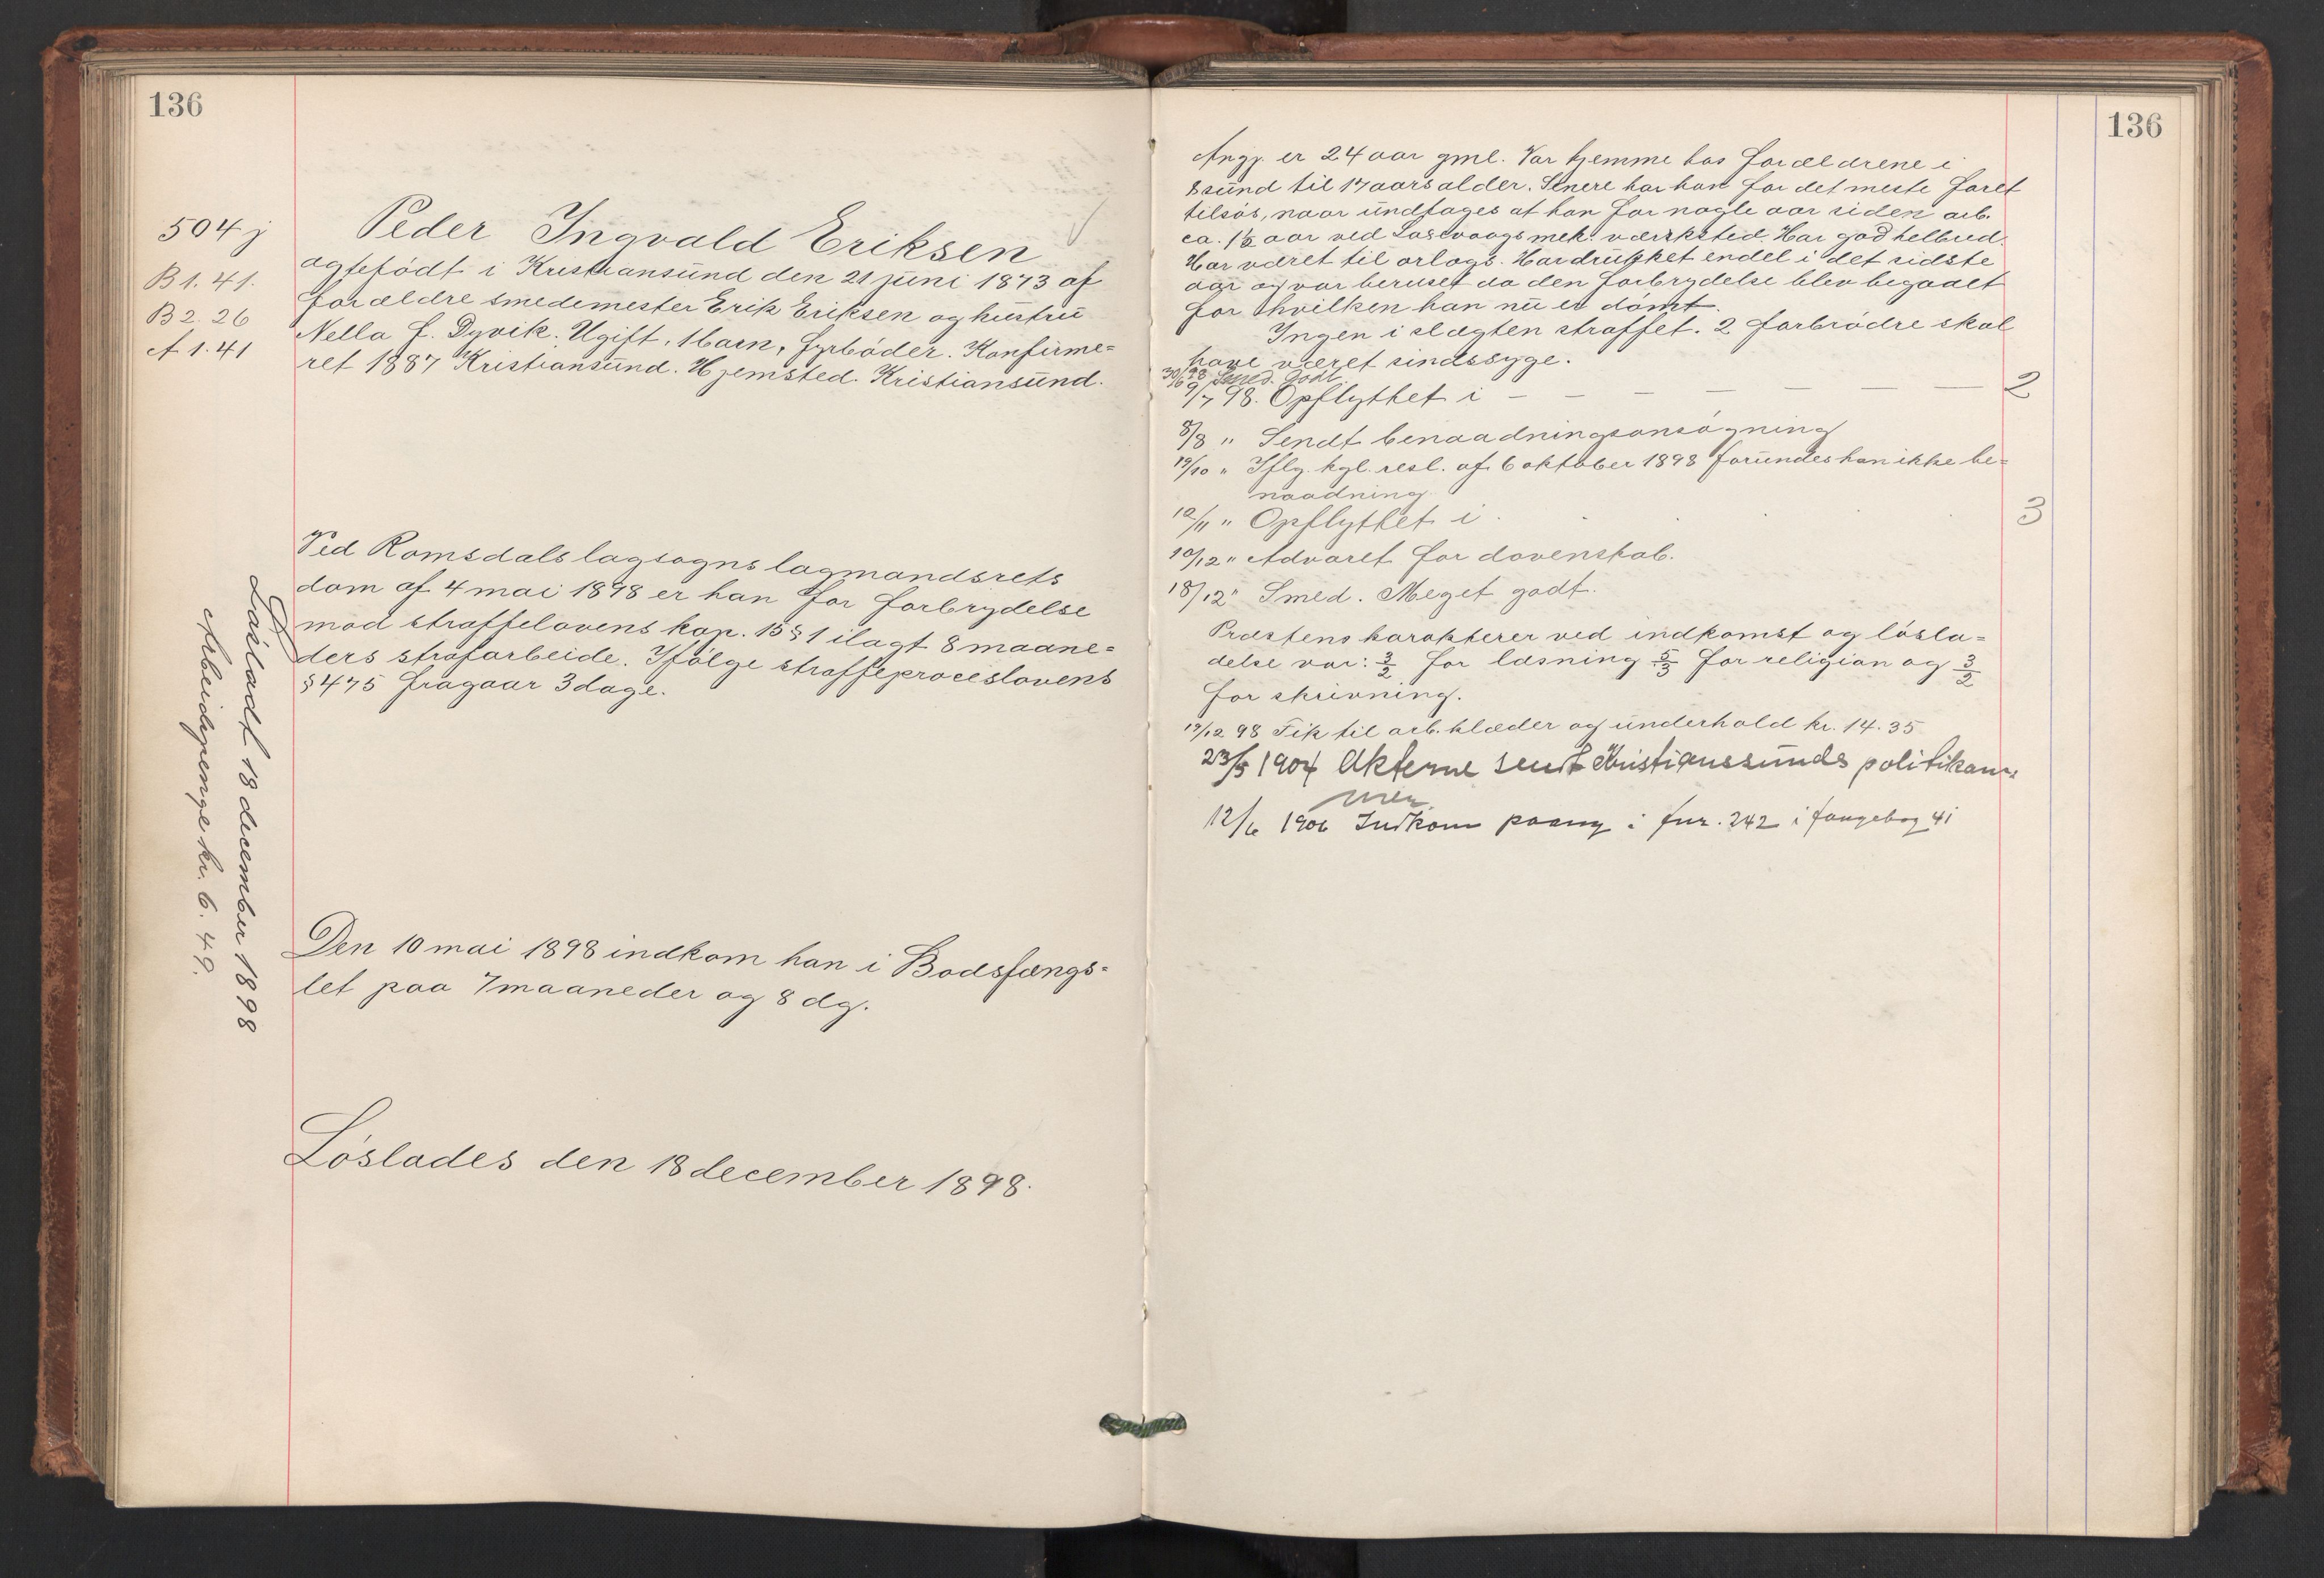 136
504 j
B 1. 41.
B 2. 26
A 1. 41
Peder Ingvald Eriksen
ægtefödt i Kristiansund den 21 juni 1873 af
forældre smedemester Erik Eriksen og hustru
Nella f. Dyvik. Ugift, 1 barn, fyrböder. Konfirme=
ret 1887 Kristiansund. Hjemsted. Kristiansund.
Ved Romsdals lagsogns lagmandsrets
dom af 4 mai 1898 er han for forbrydelse
mod straffelovens kap. 15 § 1 ilagt 8 maane=
ders strafarbeide. Ifölge straffeproceslovens
§ 475 fragaar 3 dage.
Lösladt 18 december 1898
Arbeidspenge kr. 6. 49.
Den 10 mai 1898 indkom han i Bodsfængs=
let paa 7 maaneder og 8 dg.
Löslades den 18 december 1898.
136
Angj. er 24 aar gml. Var hjemme hos forældrene i
Ksund til 17 aars alder. Senere har han for det meste faret
tilsös, naar undtages at han for nogle aar siden arb.
ca. 1½ aar ved Laxevaags mek. værksted. Har god helbred.
Har været til orlogs. Har drukket endel i det sidste
aar og var beruset da den forbrydelse blev begaaet
for hvilken han nu er dömt.
Ingen i slægten straffet. 2 farbrödre skal
have været sindssyge.
30/6 98 Smed. Godt
9/7 98. Opflyttet i — — — — — — 2
8/8 " Sendt benaadningsansögning
19/10 " Iflg. kgl. resl. af 6 oktober 1898 forundes han ikke be=
naadning
12/11 " Opflyttet i . . . . 3
10/12 " Advaret for dovenskab.
18/12 " Smed. Meget godt.
Præstens karakterer ved indkomst og lösla=
delse var: 3/2 for læsning 5/3 for religion og 3/2
for skrivning.
19/12 98 Fik til arb. klæder og underhold kr. 14. 35
23/5 1904 Akterne sendt Kristianssunds politikam=
mer.
12/6 1906 Indkom paany i fnr. 242 i fangebog 41